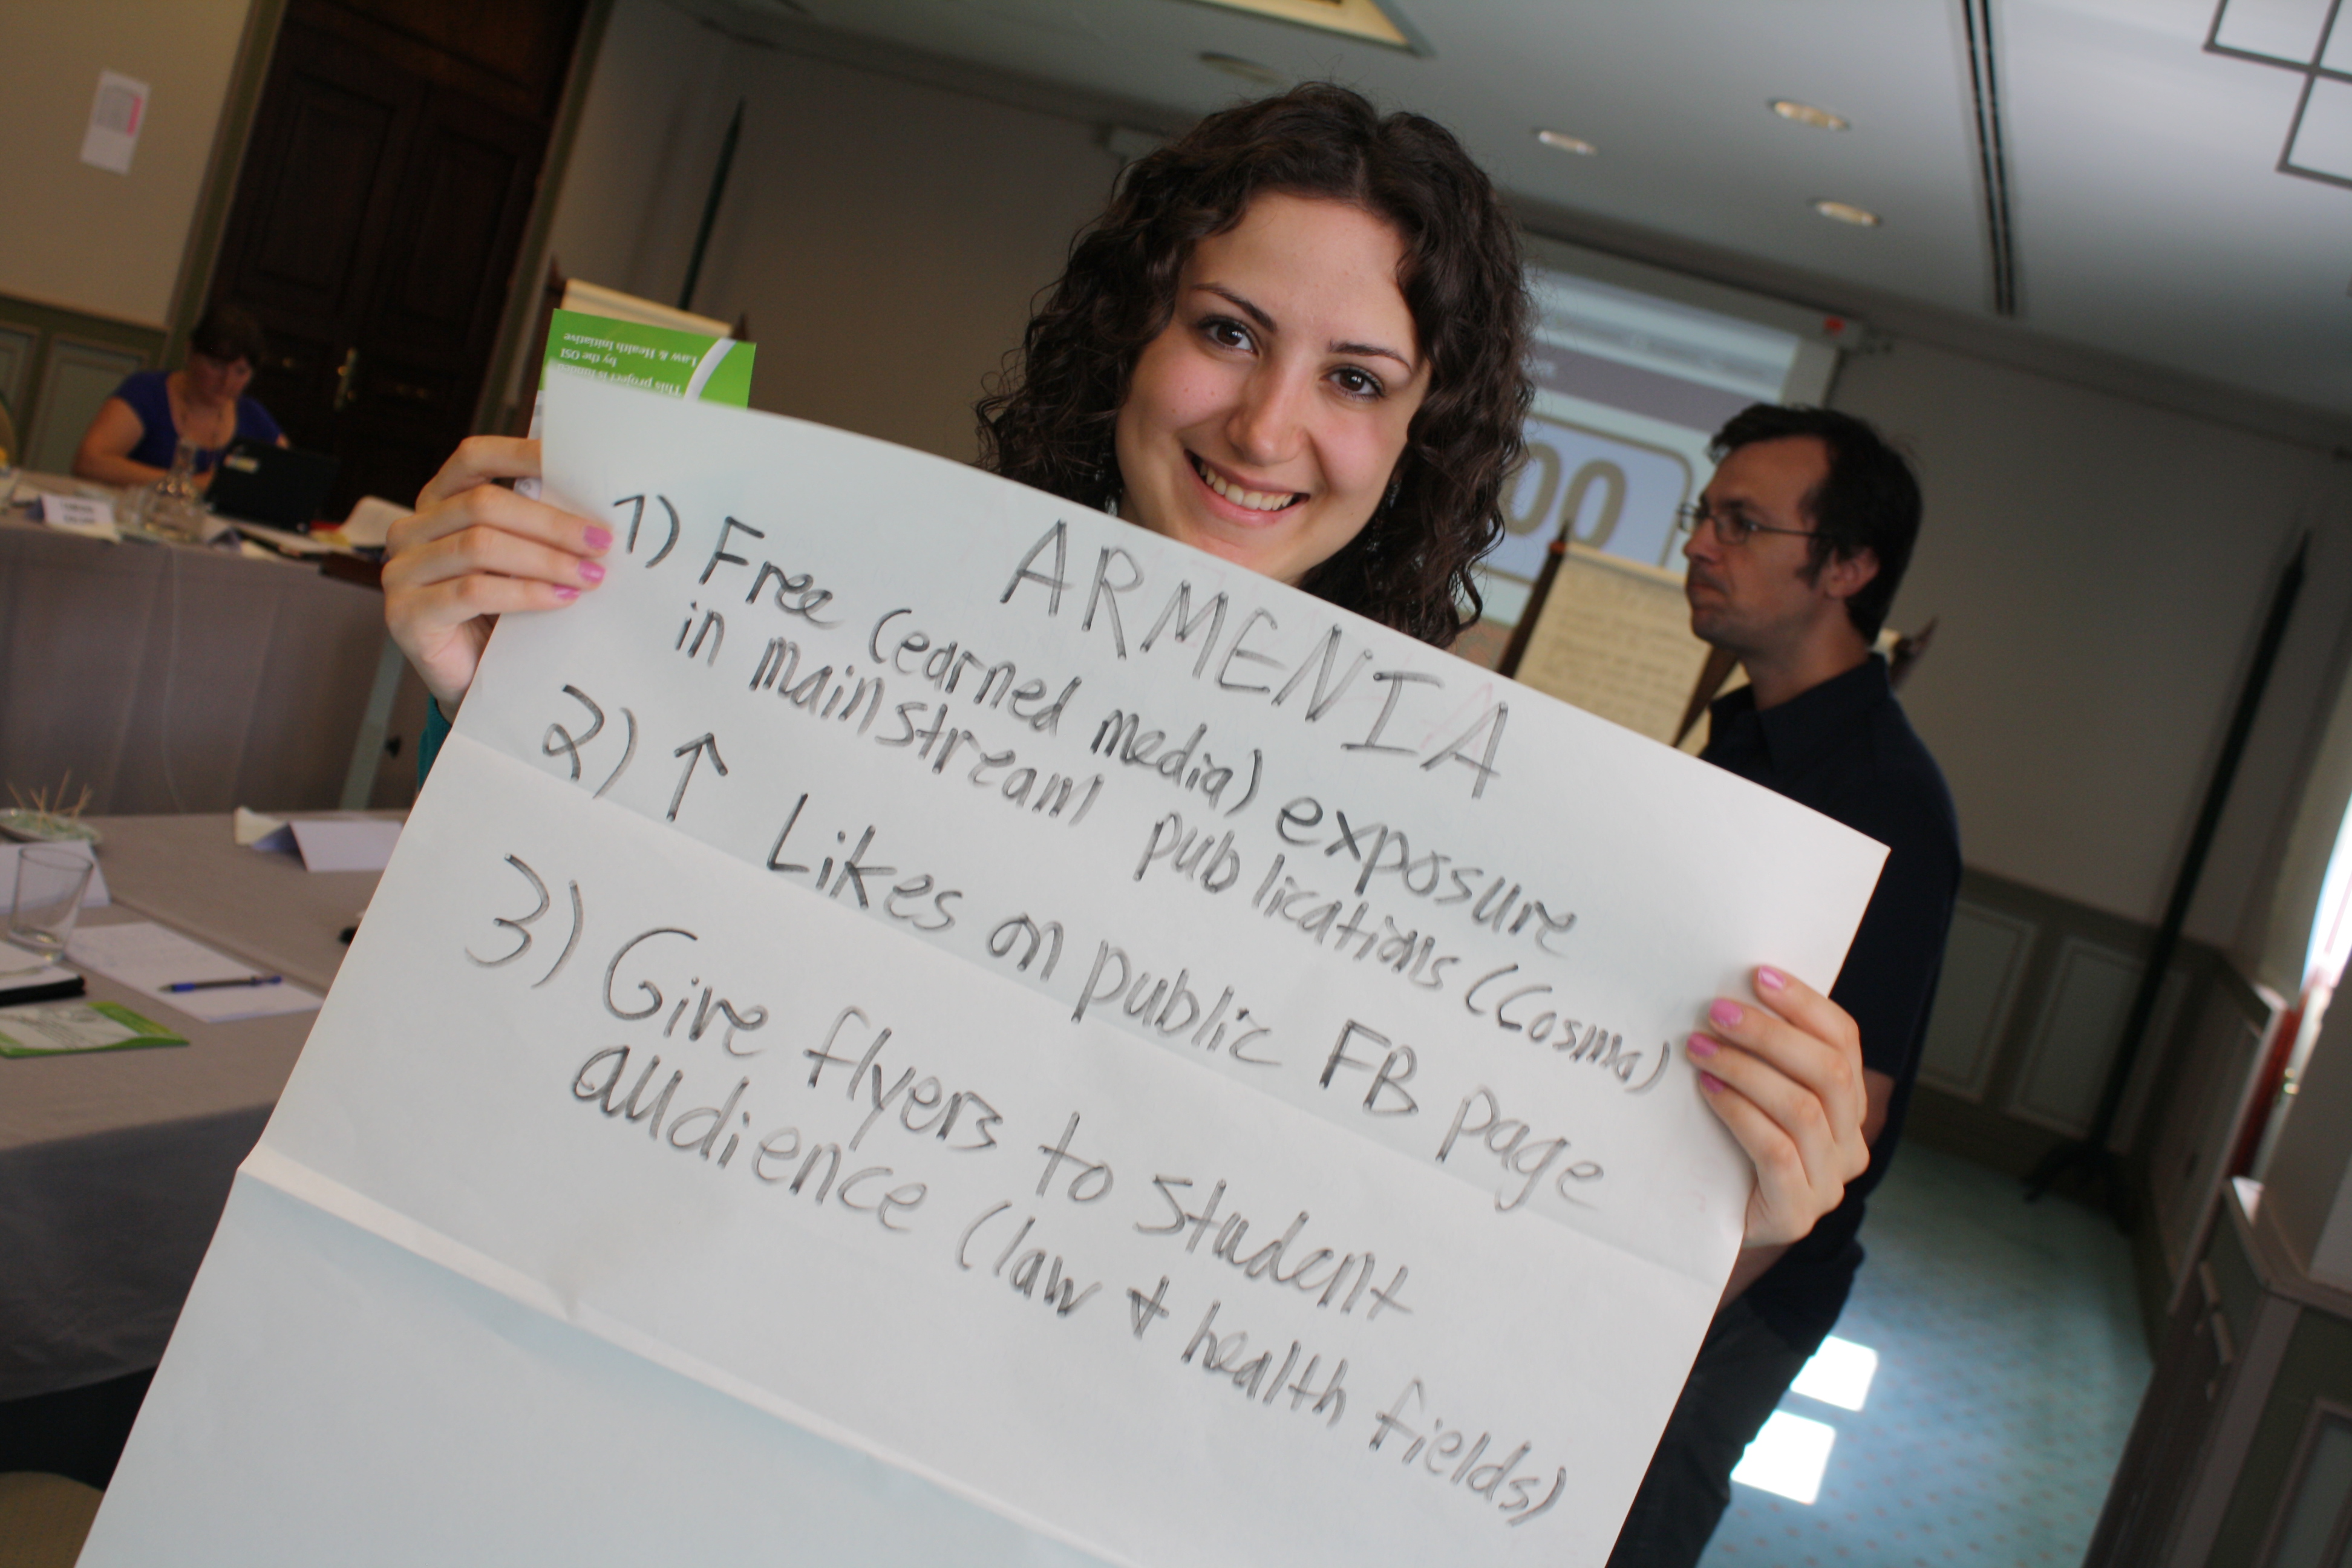 This project is funded
by the OSI
Law & Health Initiative
00
ARMENIA
1) Free (earned media) exposure
in mainstream publications (Cosmo)
2) ↑ Likes on public FB page
3) Give flyers to student
audience (law & health fields)